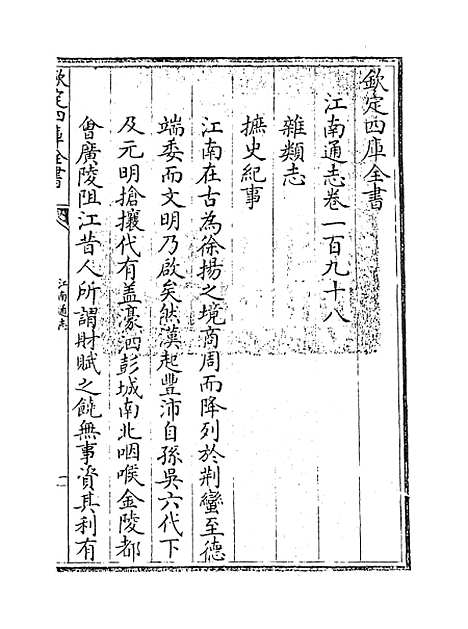 欽定四庫全書
江南通志卷一百九十八
雜類志
摭史紀事
江南在古為徐揚之境商周而降列於荆蠻至德
端委而文明乃啟矣然漢起豐沛自孫吳六代下
及元明搶攘代有盖濠泗彭城南北咽喉金陵都
會廣陵阻江昔人所謂財賦之饒無事資其利有
欽定四庫全書
江南通志
一